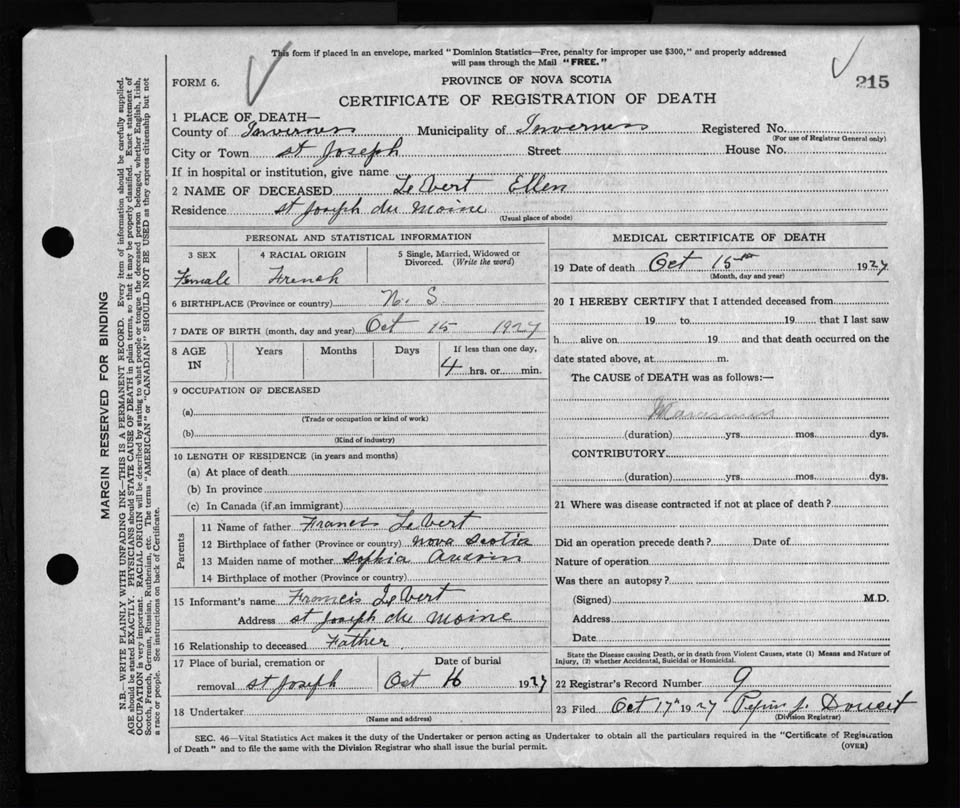 This form if placed in an envelope, marked "Dominion Statistics—Free, penalty for improper use $300," and properly addressed
will pass through the Mail "FREE."
FORM 6.
PROVINCE OF NOVA SCOTIA
215
CERTIFICATE OF REGISTRATION OF DEATH
1 PLACE OF DEATH—
County of Inverness Municipality of Inverness Registered No.
(For use of Registrar General only)
City or Town St Joseph Street House No.
If in hospital or institution, give name
2 NAME OF DECEASED LeBert Ellen
Residence St Joseph du Moine
(Usual place of abode)
PERSONAL AND STATISTICAL INFORMATION
3 SEX 4 RACIAL ORIGIN 5 Single, Married, Widowed or
Divorced. (Write the word)
Female French
6 BIRTHPLACE (Province or country) N. S.
7 DATE OF BIRTH (month, day and year) Oct 15 1927
8 AGE Years Months Days If less than one day,
IN 4 hrs. or min.
9 OCCUPATION OF DECEASED
(a)
(Trade or occupation or kind of work)
(b)
(Kind of industry)
10 LENGTH OF RESIDENCE (in years and months)
(a) At place of death
(b) In province
(c) In Canada (if an immigrant)
Parents
11 Name of father Francis LeBert
12 Birthplace of father (Province or country) Nova Scotia
13 Maiden name of mother Sophia
14 Birthplace of mother (Province or country)
15 Informant's name Francis LeBert
Address St Joseph du Moine
16 Relationship to deceased Father
17 Place of burial, cremation or Date of burial
removal St Joseph Oct 16 1927
18 Undertaker
(Name and address)
MEDICAL CERTIFICATE OF DEATH
19 Date of death Oct 15th 1927
(Month, day and year)
20 I HEREBY CERTIFY that I attended deceased from
19 to 19 that I last saw
h alive on 19 and that death occurred on the
date stated above, at m.
The CAUSE of DEATH was as follows:—
Marasmus
(duration) yrs. mos. dys.
CONTRIBUTORY
(duration) yrs. mos. dys.
21 Where was disease contracted if not at place of death?
Did an operation precede death? Date of
Nature of operation
Was there an autopsy?
(Signed) M.D.
Address
Date
State the Disease causing Death, or in death from Violent Causes, state (1) Means and Nature of
Injury, (2) whether Accidental, Suicidal or Homicidal.
22 Registrar's Record Number 9
23 Filed Oct 17th 1927 J. Doucet
(Division Registrar)
SEC. 46—Vital Statistics Act makes it the duty of the Undertaker or person acting as Undertaker to obtain all the particulars required in the "Certificate of Registration
of Death" and to file the same with the Division Registrar who shall issue the burial permit.
(OVER)
MARGIN RESERVED FOR BINDING
N.B.—WRITE PLAINLY WITH UNFADING INK—THIS IS A PERMANENT RECORD. Every item of information should be carefully supplied.
AGE should be stated EXACTLY. PHYSICIANS should STATE CAUSE OF DEATH in plain terms, so that it may be properly classified. Exact statement of
OCCUPATION is very important. RACIAL ORIGIN will be described by stating to what people or tongue the deceased person belonged, whether English, Irish,
Scotch, French, German, Russian, Ruthenian, etc. The terms "AMERICAN" or "CANADIAN" SHOULD NOT BE USED as they express citizenship but not
a race or people. See instructions on back of Certificate.